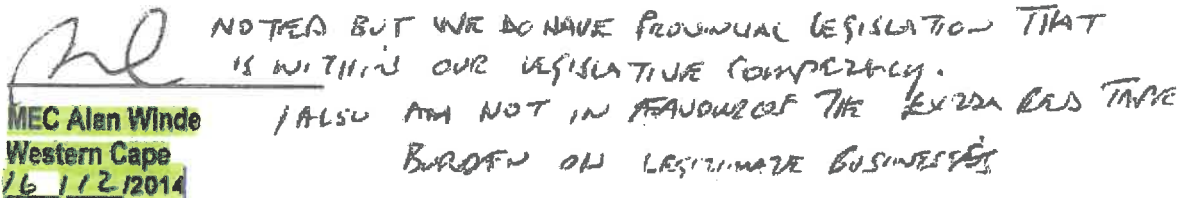 NOTED BUT WE DO HAVE PROVINCIAL LEGISLATION THAT
IS WITHIN OUR LEGISLATIVE COMPETENCY.
I ALSO AM NOT IN FAVOUR OF THE EXTRA RED TAPE
BURDEN ON LEGITIMATE BUSINESSES
MEC Alan Winde
Western Cape
16/12/2014